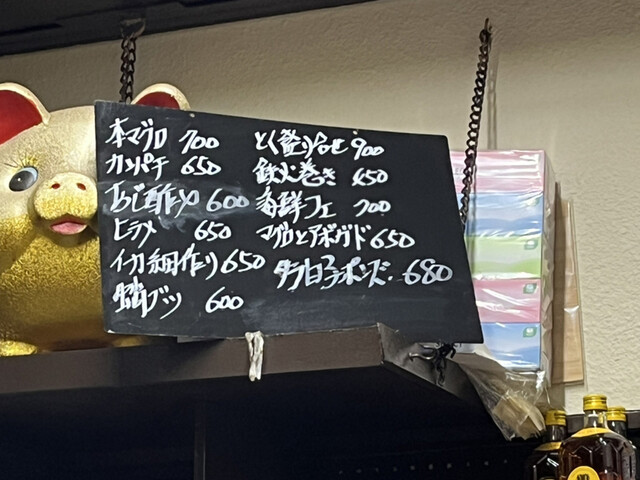 本マグロ 700
カンパチ 650
あじ酢〆 600
ヒラメ 650
イカ細作り 650
蛸ブツ 600
とく盛り合せ 900
鉄火巻き 650
海鮮フェ 700
マグロとアボガド 650
タラ白子ポンズ 680